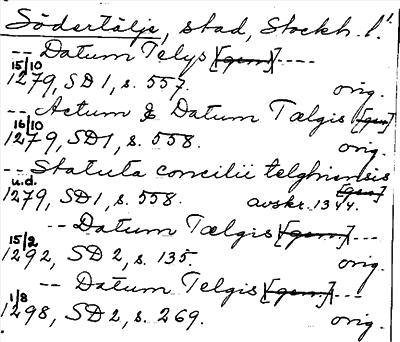 Södertälje, stad, Stockh. l.
-- Datum Telys [gen] ----
15/10
1279, SD 1, s. 557. orig.
-- Actum & Datum Tælgis [gen]
16/10
1279, SD 1, s. 558. orig.
-- Statuta concilii telghiensis
u.d. [gen]
1279, SD 1, s. 558. avskr. 1344.
-- Datum Tælgis [gen] ---
15/2
1292, SD 2, s. 135. orig.
-- Datum Telgis [gen] ---
1/8
1298, SD 2, s. 269. orig.